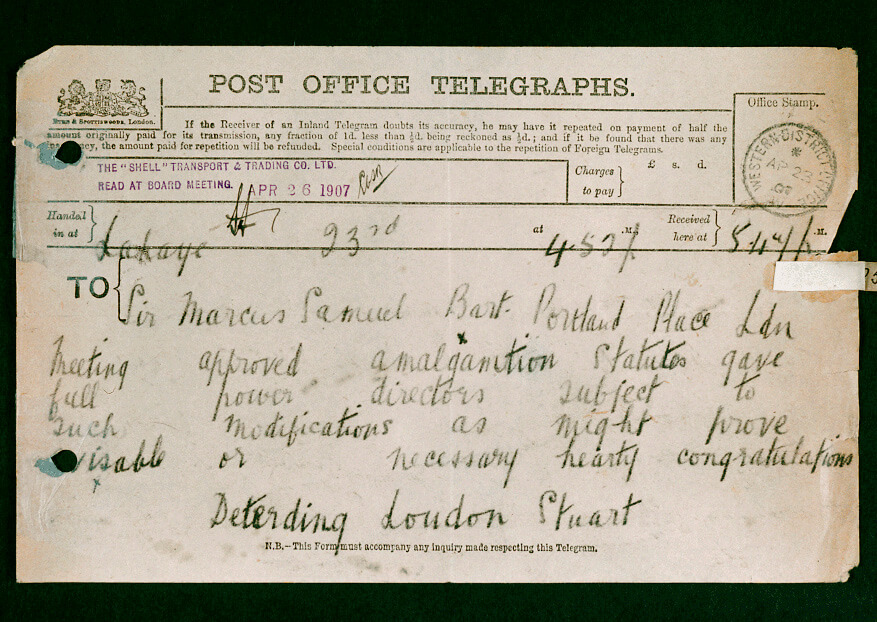 POST OFFICE TELEGRAPHS.
EYRE & SPOTTISWOODE, London.
Office Stamp.
If the Receiver of an Inland Telegram doubts its accuracy, he may have it repeated on payment of half the
amount originally paid for its transmission, any fraction of 1d. less than ½d. being reckoned as ½d.; and if it be found that there was any
the amount paid for repetition will be refunded. Special conditions are applicable to the repetition of Foreign Telegrams.
WESTERN DISTRICT OFFICE
AP 23
07
THE "SHELL" TRANSPORT & TRADING CO. LTD.
READ AT BOARD MEETING. APR 26 1907
Charges to pay } £ s. d.
Handed in at } Lahaye 23rd at 4.52 .M. Received here at } .M.
TO { Sir Marcus Samuel Bart. Portland Place Ldn
Meeting approved amalgamtion Statutes gave
full power directors subject to
such modifications as might prove
visable or necessary hearty congratulations
Deterding Loudon Stuart
N.B.—This Form must accompany any inquiry made respecting this Telegram.